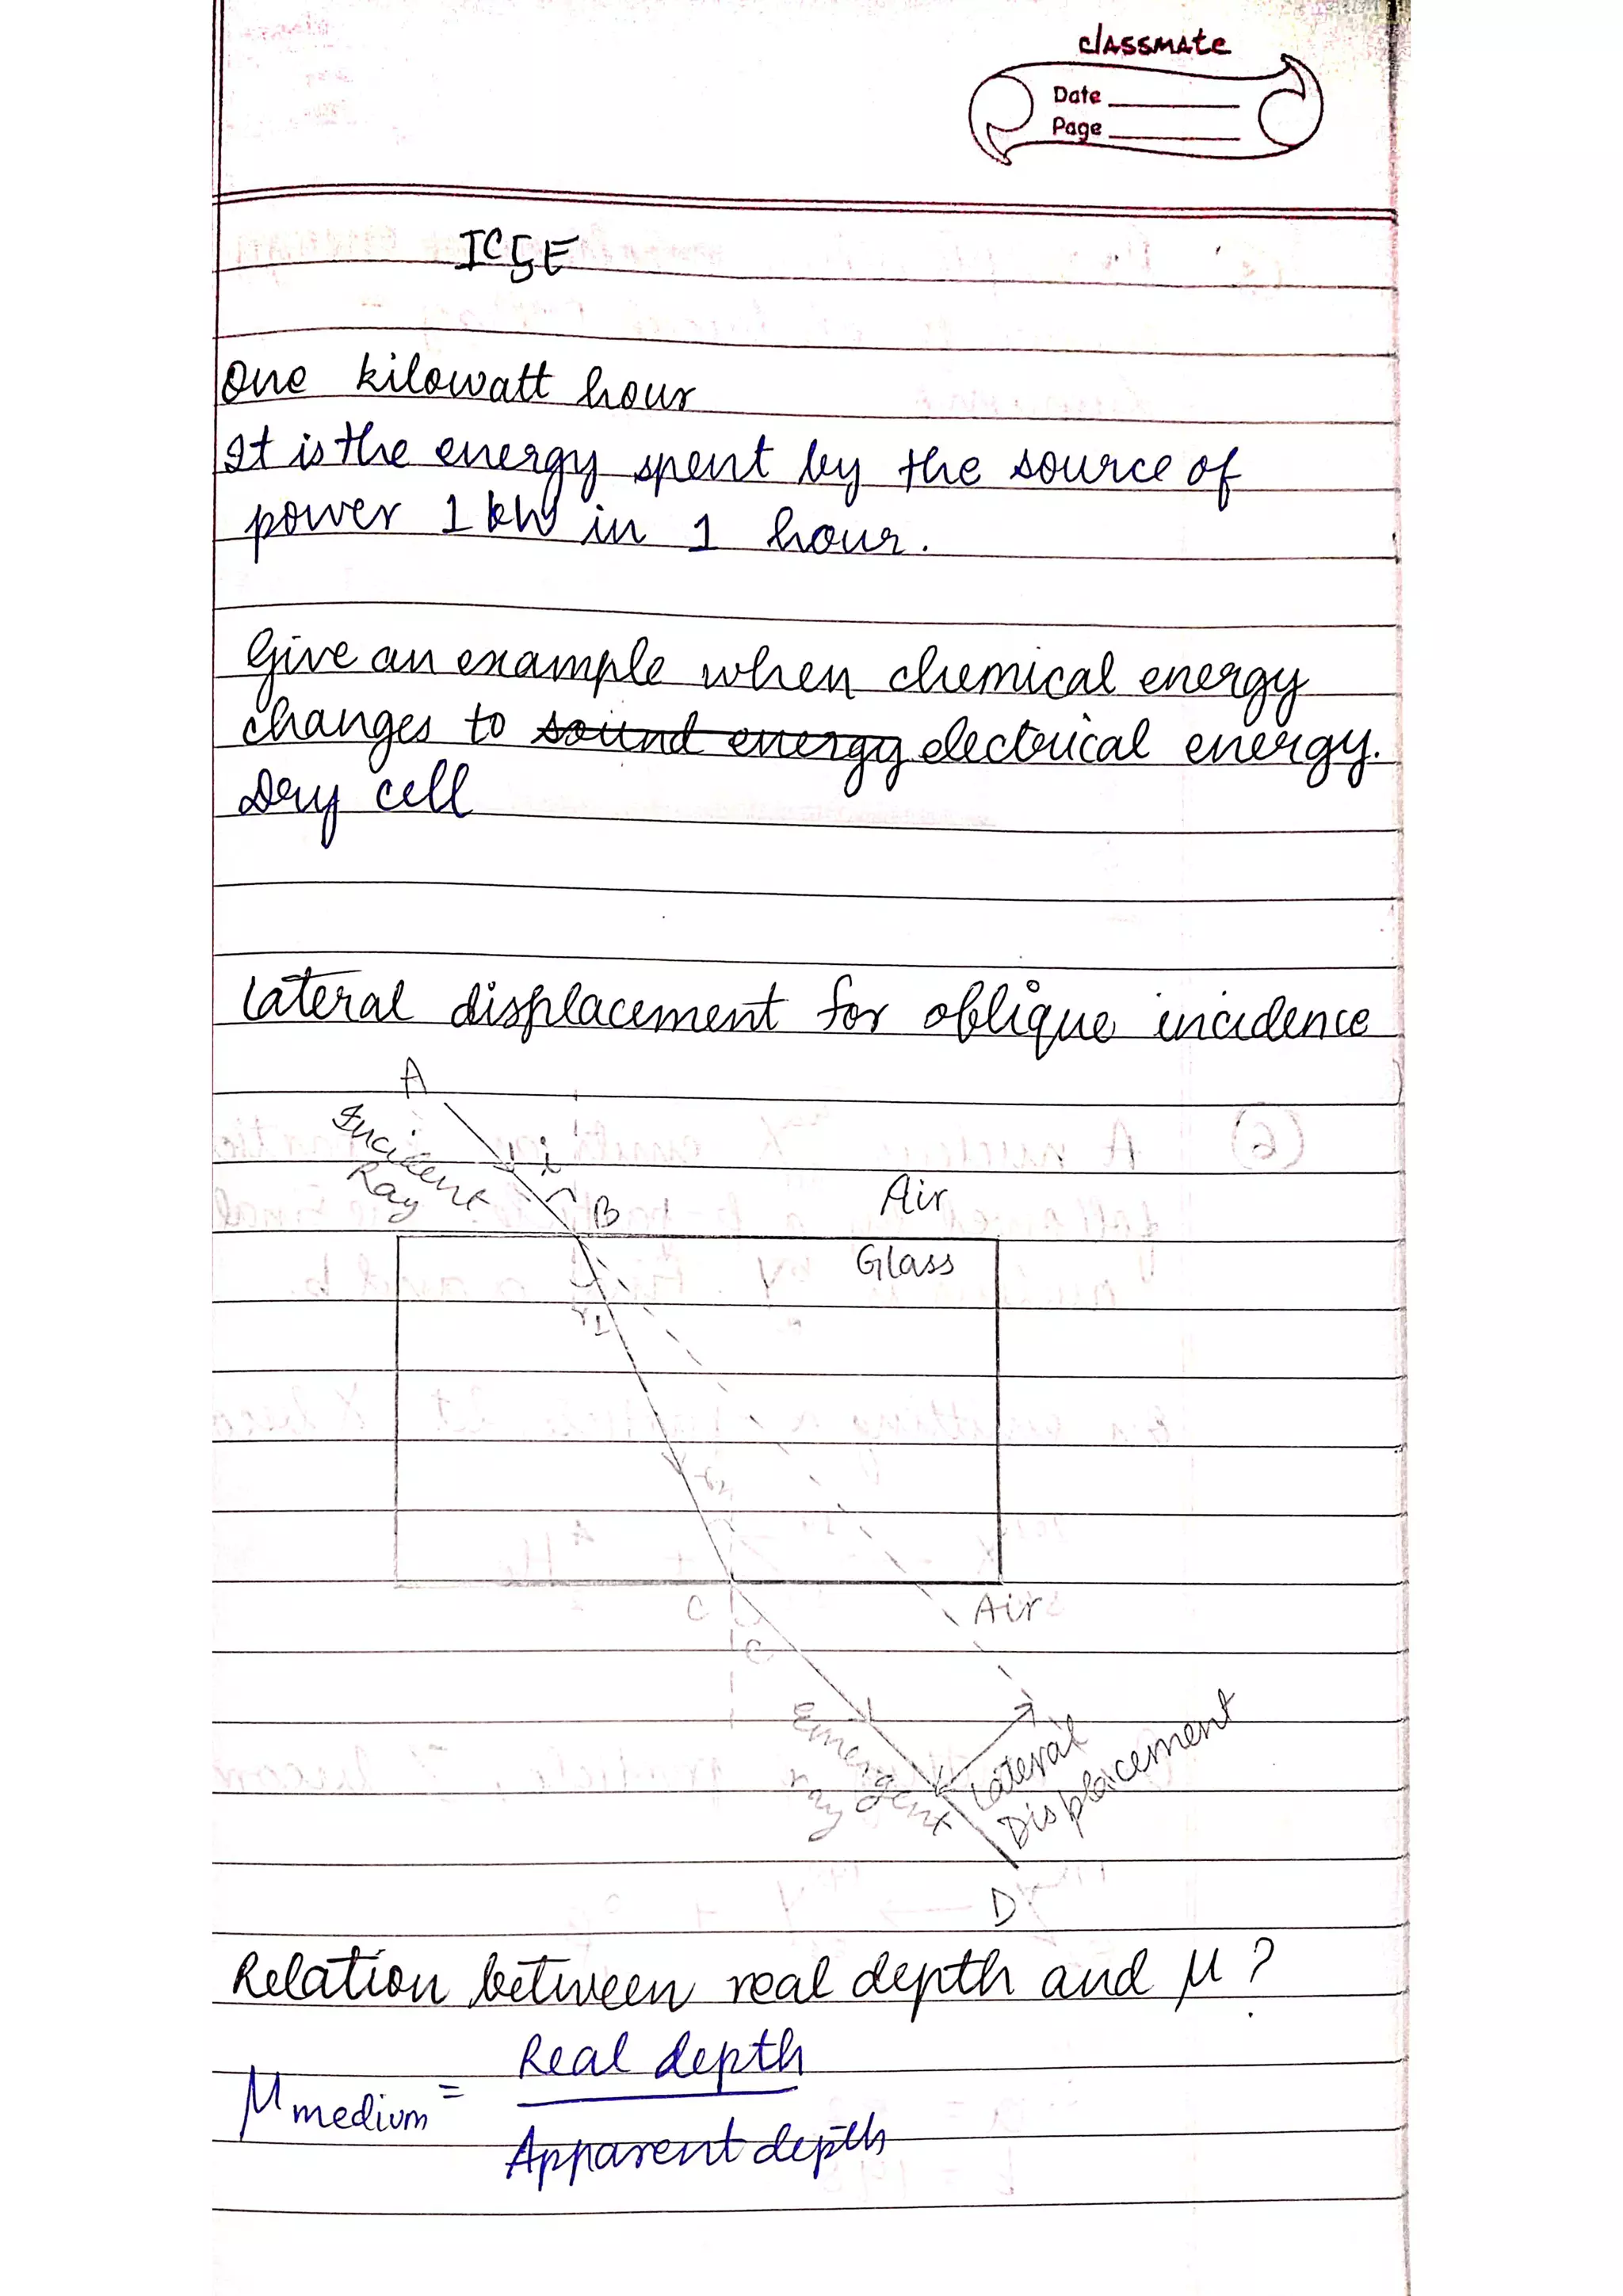 classmate
Date
Page
ICSE
One kilowatt hour
It is the energy spent by the source of
power 1 kW in 1 hour.
Give an example when chemical energy
changes to sound energy electrical energy.
Dry cell
Lateral displacement for oblique incidence
A
Incident
Ray
i
B
Air
Glass
r1
r2
Air
C
e
Emergent
ray
Lateral
Displacement
D
Relation between real depth and μ?
μmedium = Real depth
Apparent depth